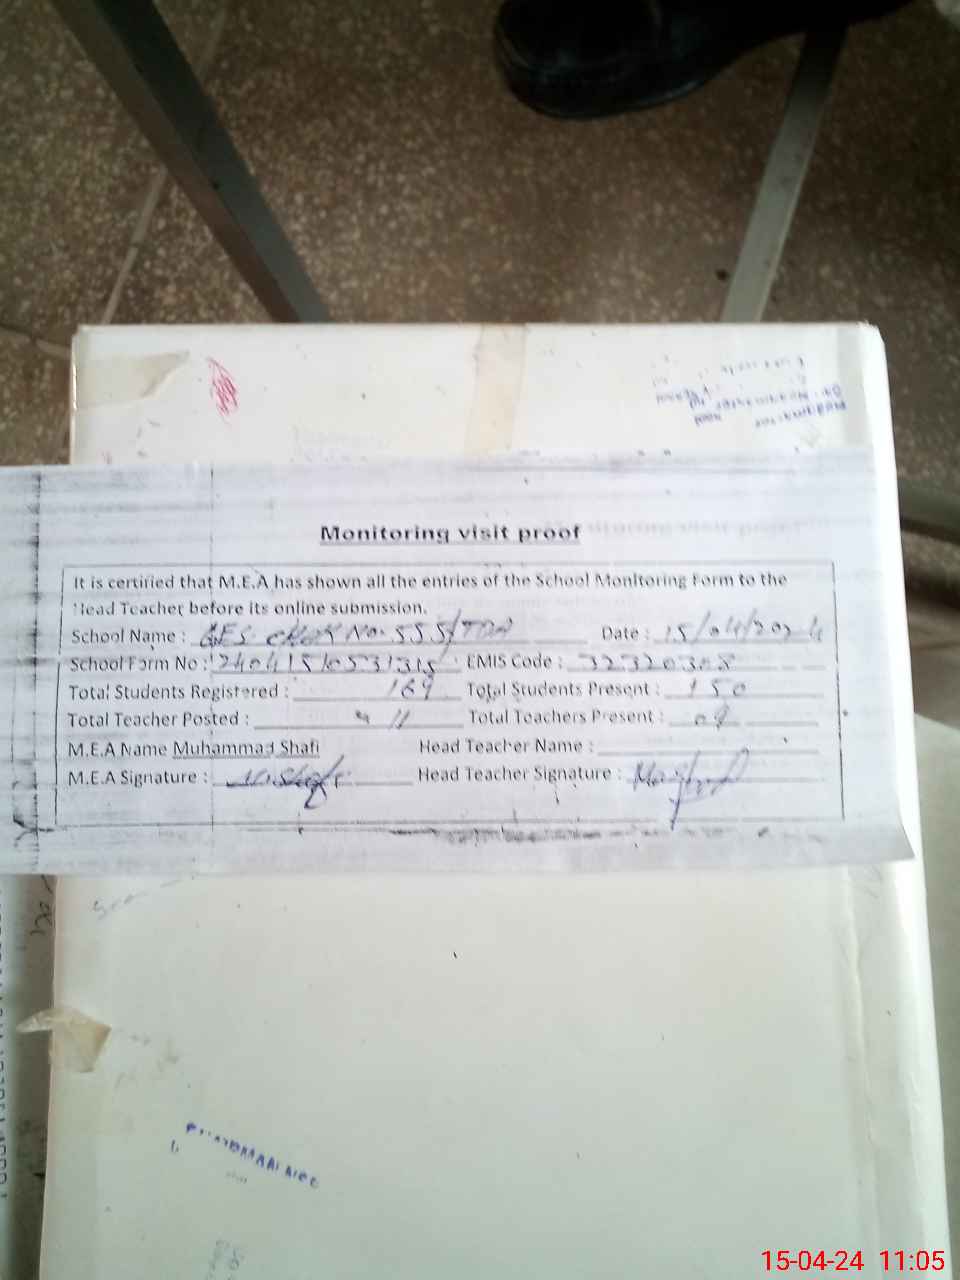 Monitoring visit proof
It is certified that M.E.A has shown all the entries of the School Monitoring Form to the
Head Teacher before its online submission.
School Name : GES CHAK No. 555/TDA Date : 15/04/2024
School Form No : 24041510531315 EMIS Code : 32320308
Total Students Registered : 169 Total Students Present : 150
Total Teacher Posted : 11 Total Teachers Present : 09
M.E.A Name Muhammad Shafi Head Teacher Name :
M.E.A Signature : M.Shafi Head Teacher Signature :
15-04-24 11:05